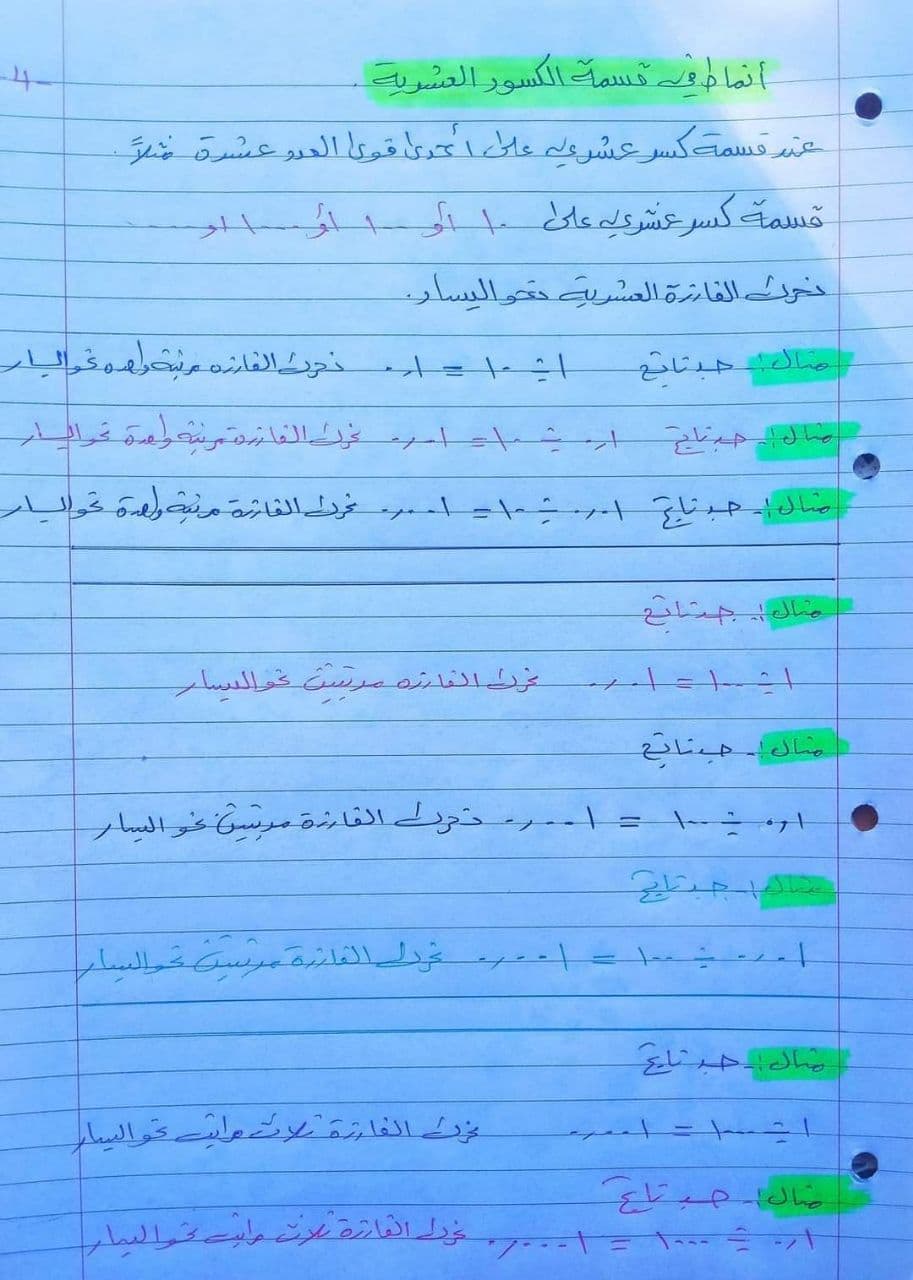 -4
أنماط في قسمة الكسور العشرية .
عند قسمة كسر عشري على احدى قوى العدد عشرة مثلاً .
قسمة كسر عشري على ١٠ أو ١٠٠ أو ١٠٠٠ او .....
نحرك الفارزة العشرية نحو اليسار .
مثال :- جد ناتج ١ ÷ ١٠ = ٠,١ نحرك الفارزه مرتبة واحده نحو اليسار
مثال :- جد ناتج ٠,١ ÷ ١٠ = ٠,٠١ نحرك الفارزة مرتبة واحدة نحو اليسار
مثال :- جد ناتج ٠,٠١ ÷ ١٠ = ٠,٠٠١ نحرك الفارزة مرتبة واحدة نحو اليسار
مثال :- جد ناتج
١ ÷ ١٠٠ = ٠,٠١ نحرك الفارزه مرتبتين نحو اليسار
مثال :- جد ناتج
٠,١ ÷ ١٠٠ = ٠,٠٠١ نحرك الفارزة مرتبتين نحو اليسار
مثال :- جد ناتج
٠,٠١ ÷ ١٠٠ = ٠,٠٠٠١ نحرك الفارزة مرتبتين نحو اليسار
مثال :- جد ناتج
١ ÷ ١٠٠٠ = ٠,٠٠١ نحرك الفارزة ثلاث مراتب نحو اليسار
مثال :- جد ناتج
٠,١ ÷ ١٠٠٠ = ٠,٠٠٠١ نحرك الفارزة ثلاث مراتب نحو اليسار